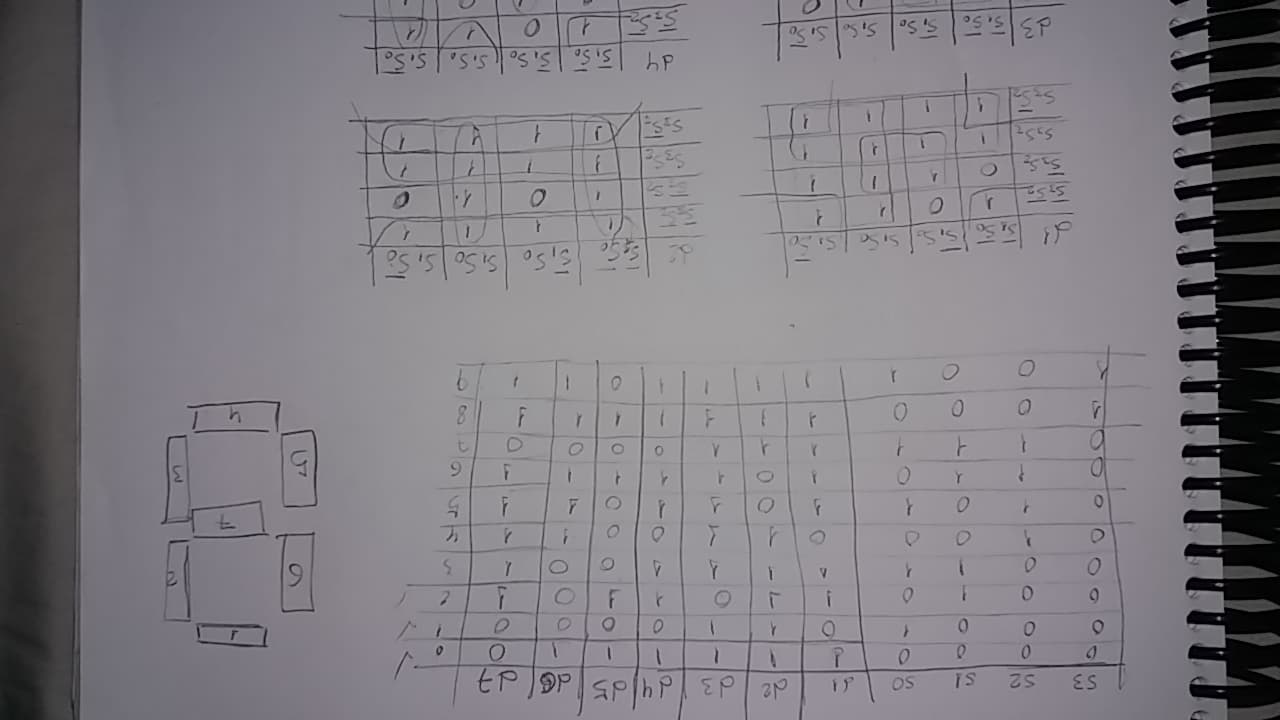 S3 S2 S1 S0 d1 d2 d3 d4 d5 d6 d7
0 0 0 0 1 1 1 1 1 1 0 0 ✓
0 0 0 1 0 1 1 0 0 0 0 1 ✓
0 0 1 0 1 1 0 1 1 0 1 2
0 0 1 1 1 1 1 1 0 0 1 3
0 1 0 0 0 1 1 0 0 1 1 4
0 1 0 1 1 0 1 1 0 1 1 5
0 1 1 0 1 0 1 1 1 1 1 6
0 1 1 1 1 1 1 0 0 0 0 7
1 0 0 0 1 1 1 1 1 1 1 8
1 0 0 1 1 1 1 1 0 1 1 9
1
6 2
7
5 3
4
d1 S̄1S̄0 S̄1S0 S1S0 S1S̄0
S̄3S̄2 1 0 1 1
S̄3S2 0 1 1 1
S3S2 1 1 1 1
S3S̄2 1 1 1 1
d2 S̄1S̄0 S̄1S0 S1S0 S1S̄0
S̄3S̄2 1 1 1 1
S̄3S2 1 0 1 0
S3S2 1 1 1 1
S3S̄2 1 1 1 1
d3 S̄1S̄0 S̄1S0 S1S0 S1S̄0
0
d4 S̄1S̄0 S̄1S0 S1S0 S1S̄0
S̄3S̄2 1 0 1 1